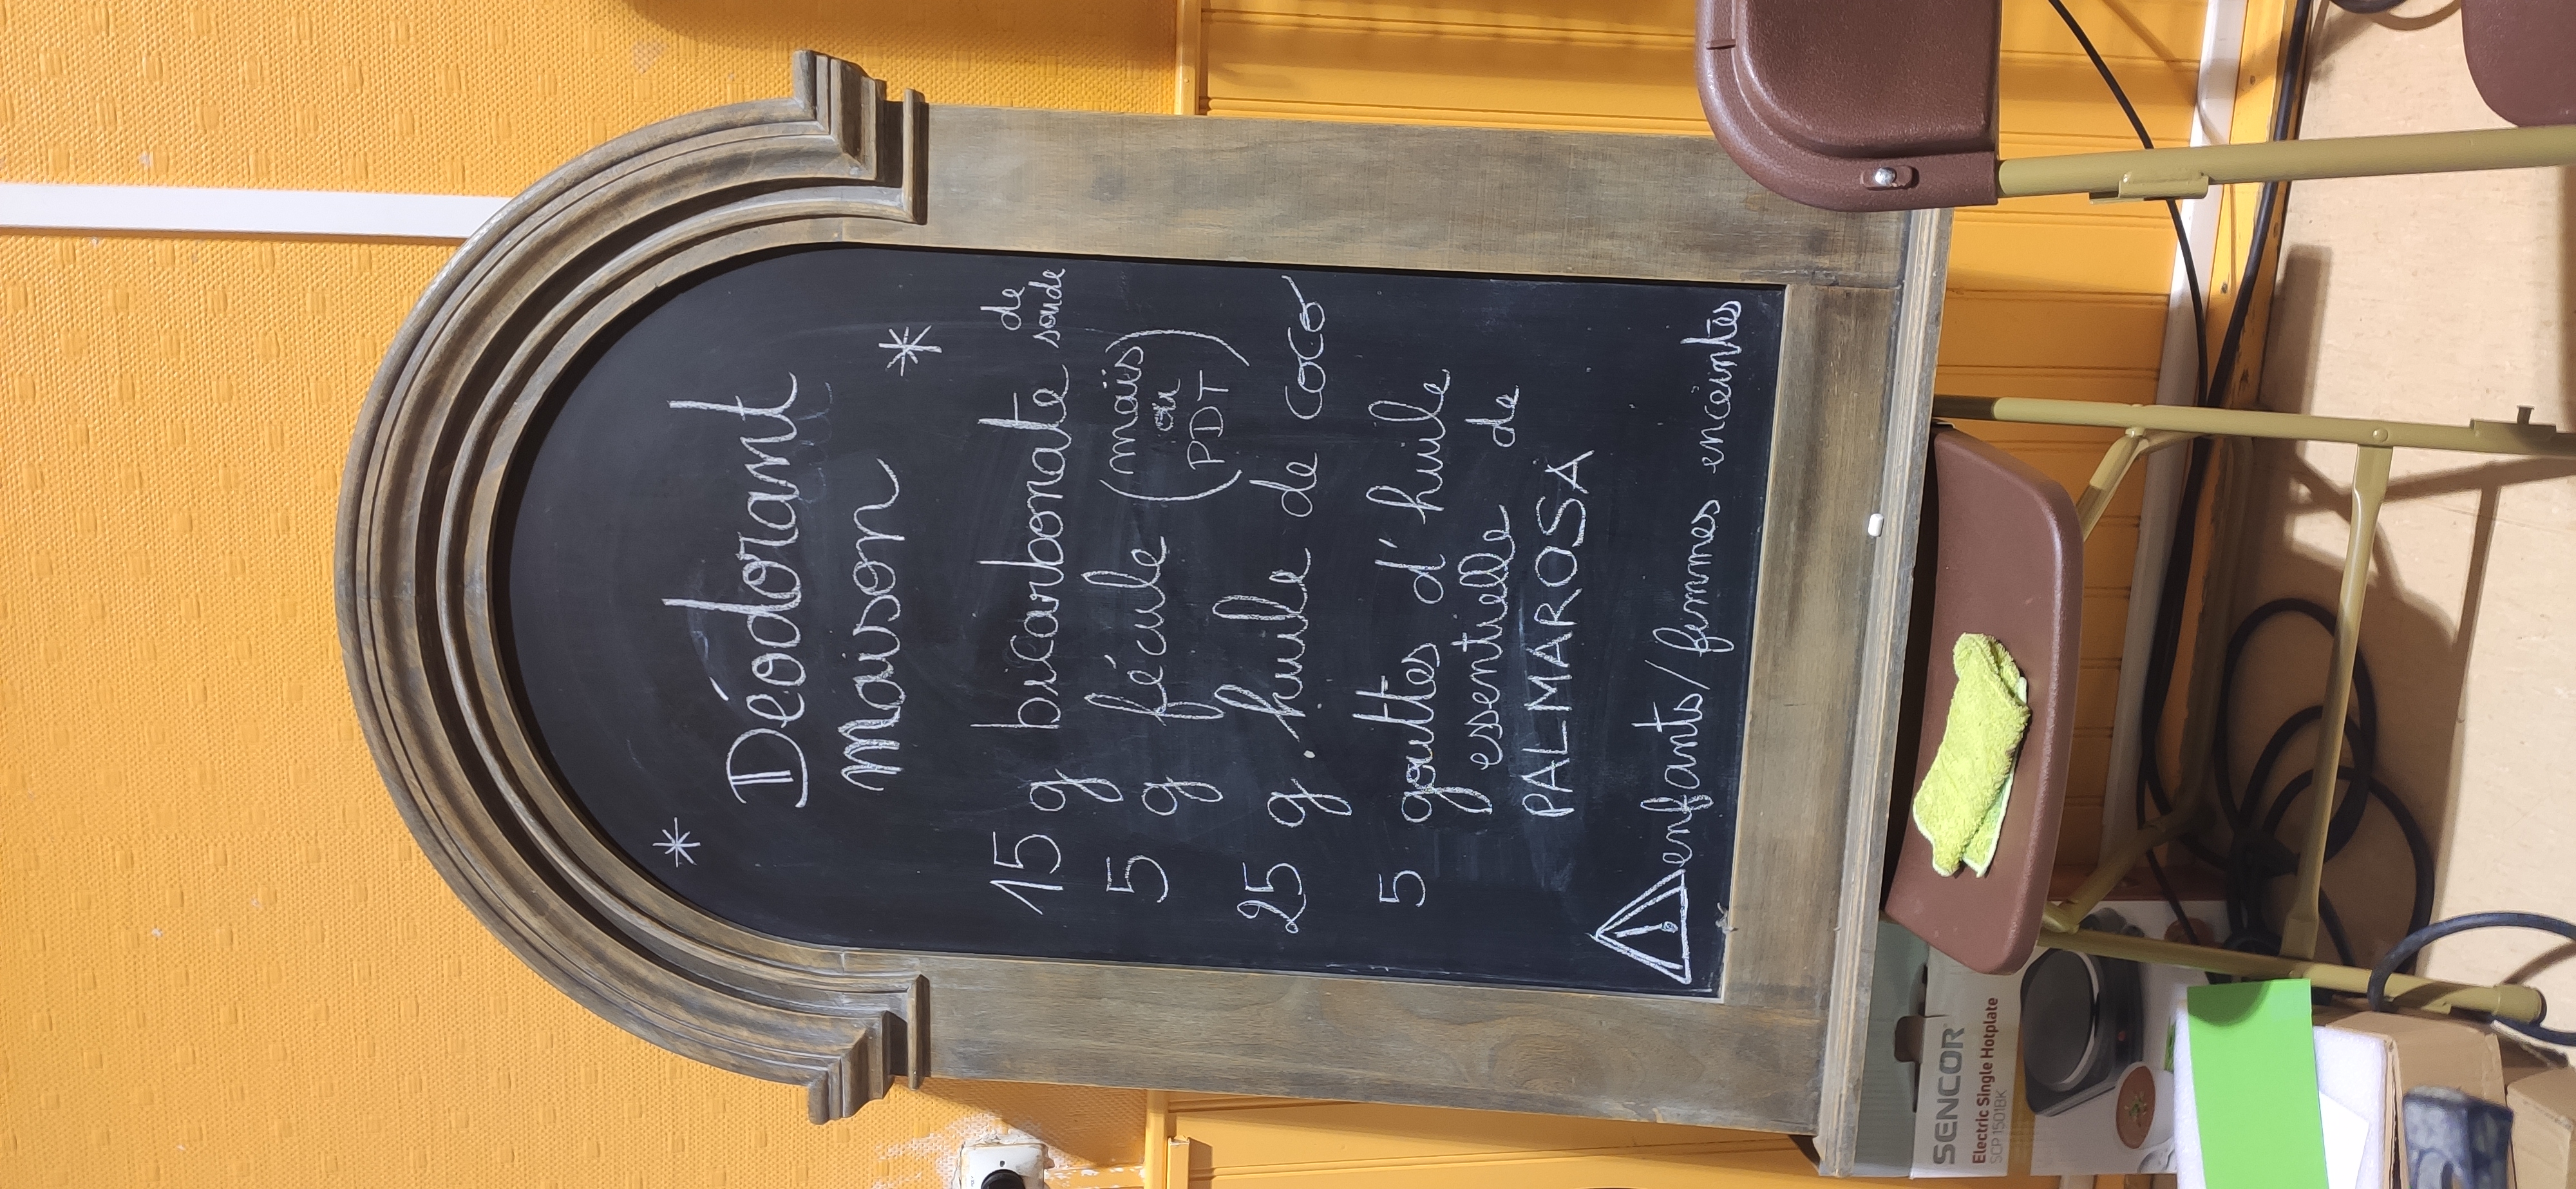 Déodorant
maison
15 g bicarbonate de soude
5 g fécule (maïs ou PDT)
25 g huile de coco
5 gouttes d'huile
essentielle de
PALMAROSA
! enfants/femmes enceintes
SENCOR
Electric Single Hotplate
SCP 1501BK